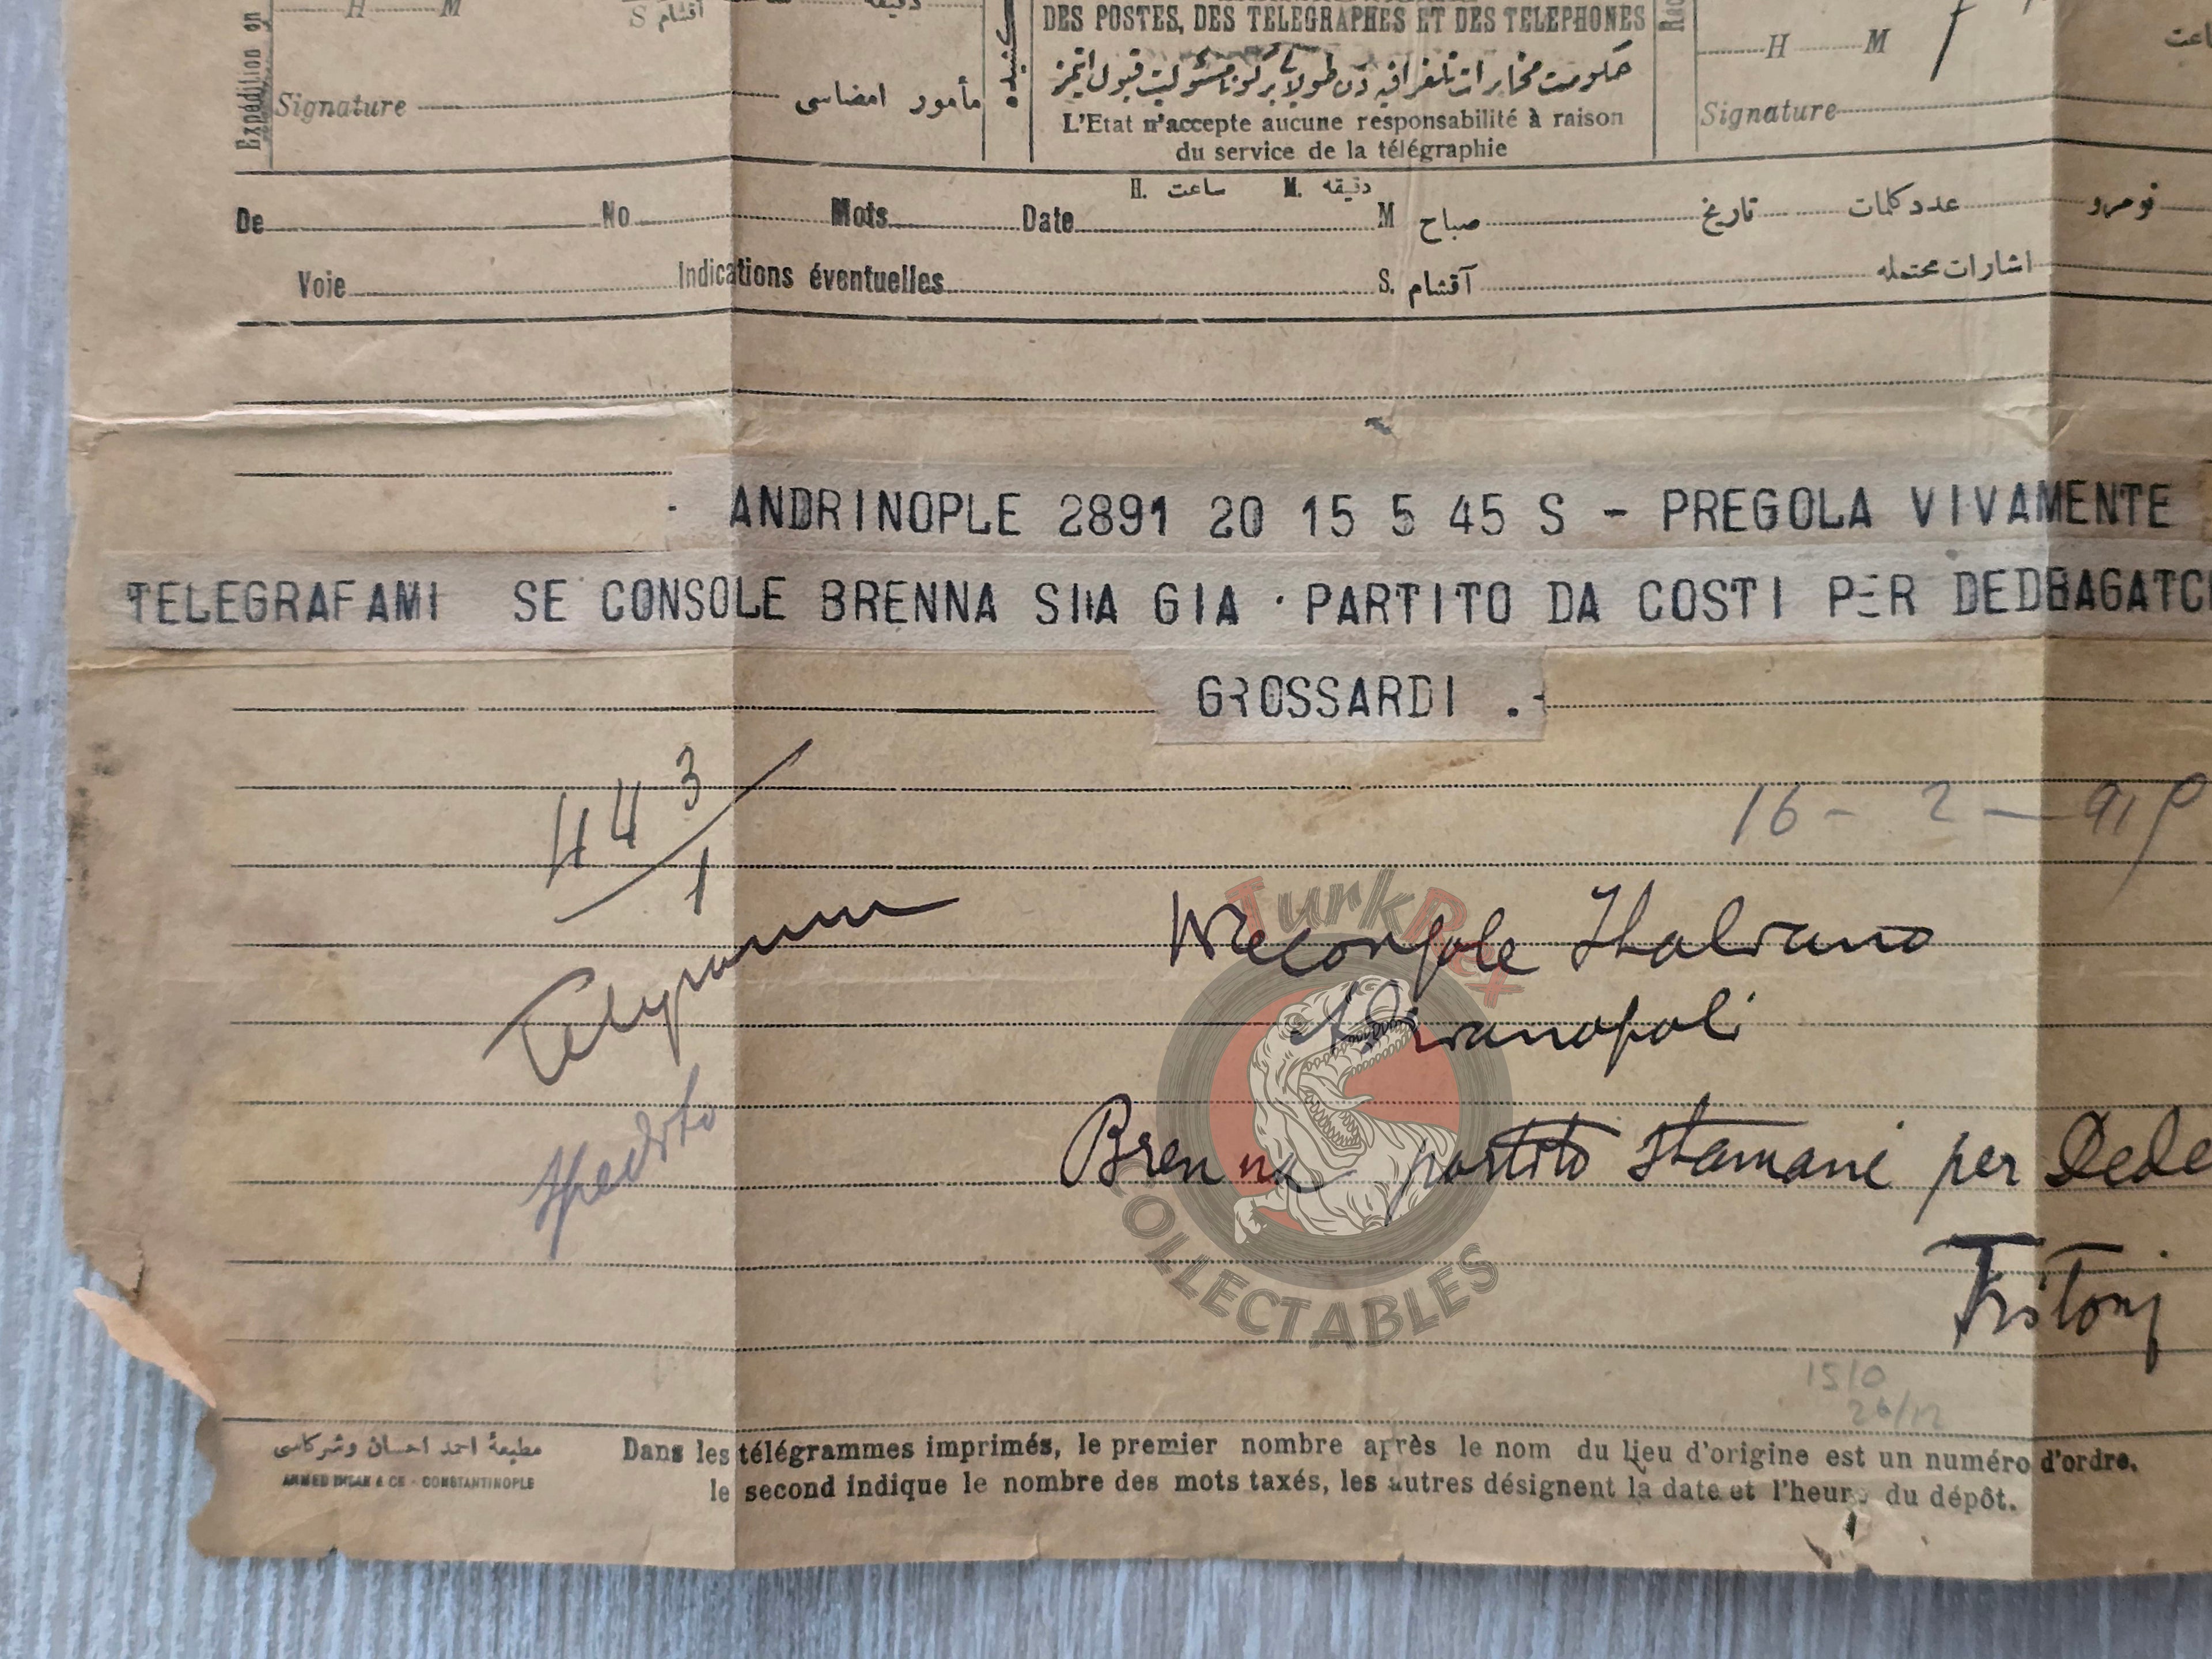 Expédition
H M S دقیقه آقشام
Signature مأمور امضاسی
كشیده
DES POSTES, DES TELEGRAPHES ET DES TELEPHONES
حكومت مخابرات تلغرافیه دن طولایی بر كونا مسئولیت قبول ایتمز
L'Etat n'accepte aucune responsabilité à raison
du service de la télégraphie
H M ساعت
Signature
H. ساعت M. دقیقه
De No Mots Date M صباح تاریخ عدد كلمات نومرو
Voie Indications éventuelles S. آقشام اشارات محتمله
ANDRINOPLE 2891 20 15 5 45 S - PREGOLA VIVAMENTE
TELEGRAFAMI SE CONSOLE BRENNA SIIA GIA PARTITO DA COSTI PER DEDEAGATC
GROSSARDI .-
443/1
16 - 2 - 919
Telegramma
Viceconsole Italiano
Adrianopoli
spedito
Brenna partito stamane per Dede
TurkRex
COLLECTABLES
1510
26/12
مطبعهٔ احمد احسان وشركاسی
AHMED IHSAN & CIE - CONSTANTINOPLE
Dans les télégrammes imprimés, le premier nombre après le nom du lieu d'origine est un numéro d'ordre,
le second indique le nombre des mots taxés, les autres désignent la date et l'heure du dépôt.